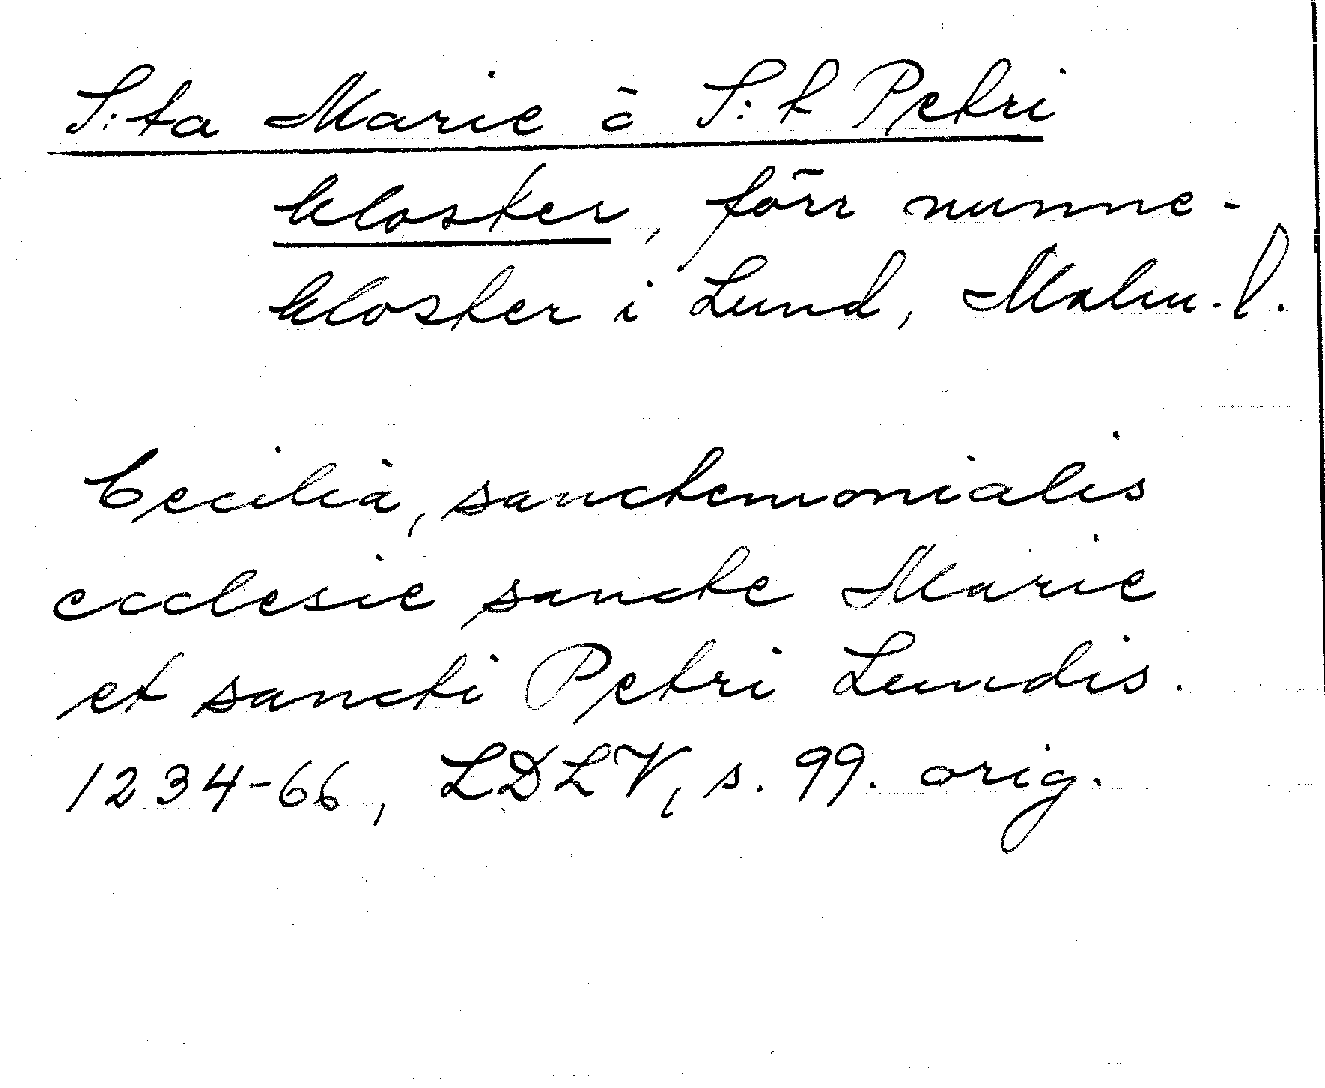 S:ta Marie o S:t Petri
kloster, förr nunne-
kloster i Lund, Malm. l.
Cecilia, sanctemonialis
ecclesie sancte Marie
et sancti Petri Lundis.
1234-66, LDLV, s. 99. orig.